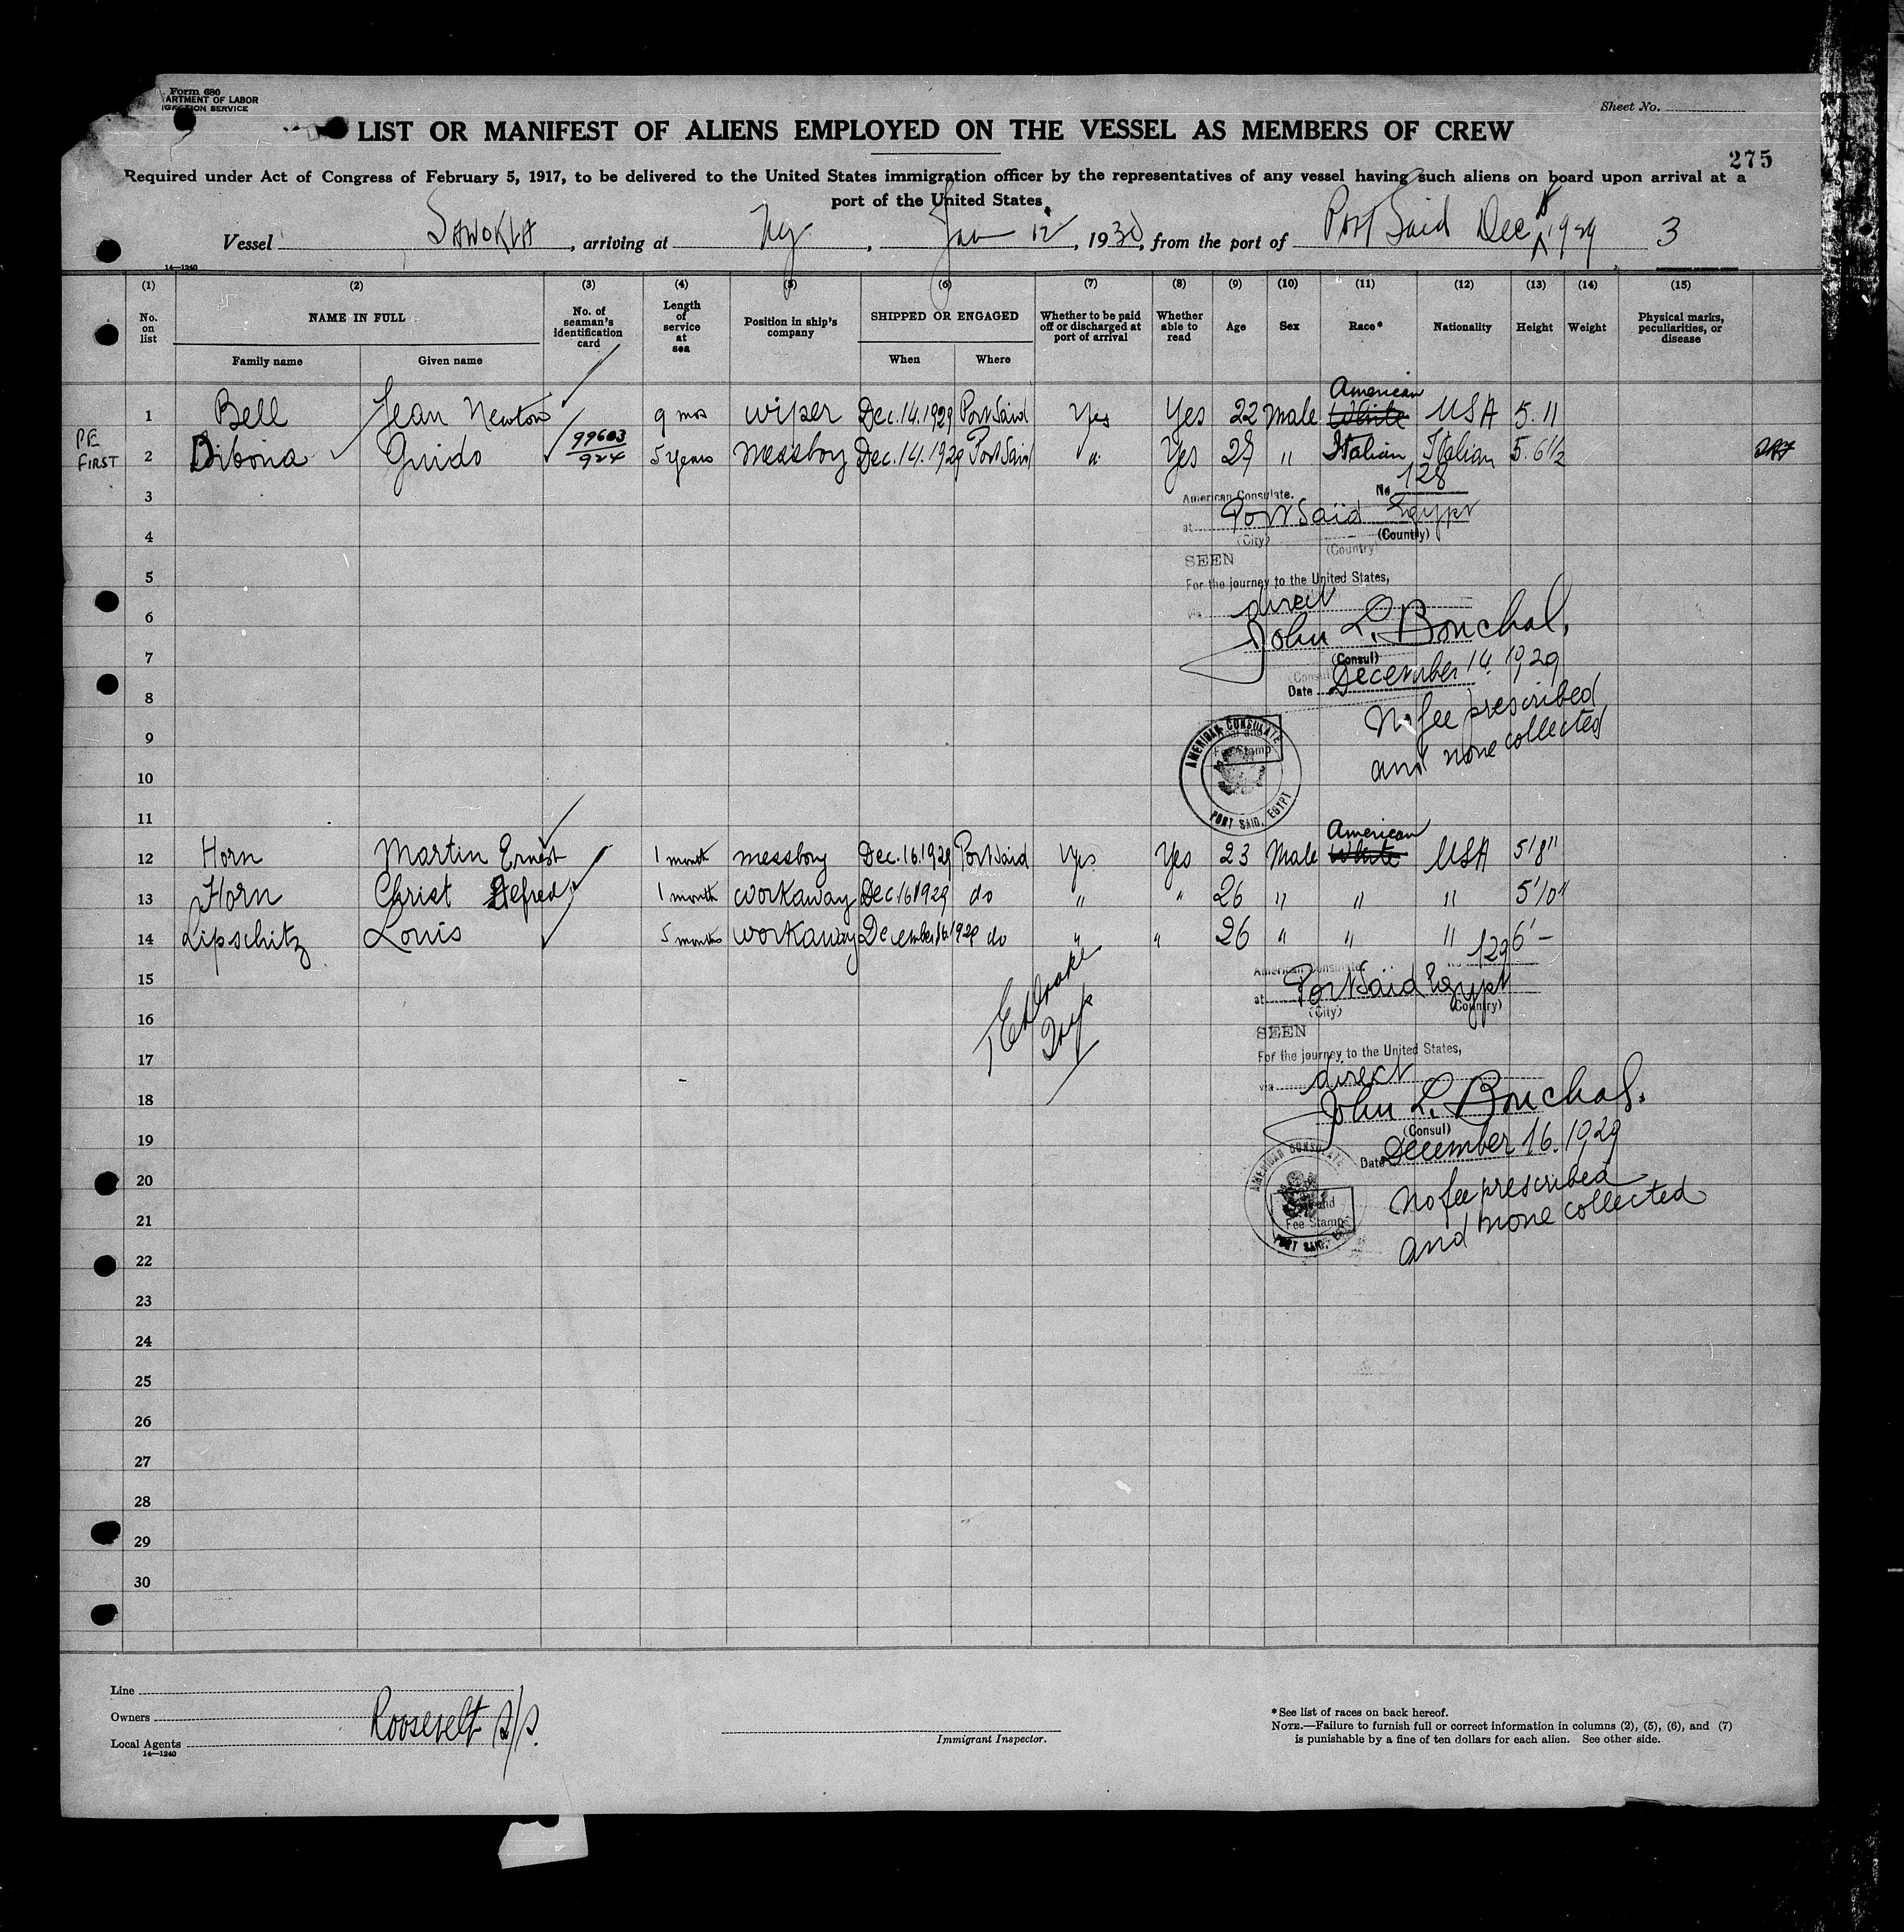 Form 680
ARTMENT OF LABOR
IGRATION SERVICE
Sheet No.
LIST OR MANIFEST OF ALIENS EMPLOYED ON THE VESSEL AS MEMBERS OF CREW
275
Required under Act of Congress of February 5, 1917, to be delivered to the United States immigration officer by the representatives of any vessel having such aliens on board upon arrival at a
port of the United States
Vessel SAWOKLA, arriving at Ny, Jan 12, 1930, from the port of Port Said Dec 1929 3
14—1240
(1) (2) (3) (4) (5) (6) (7) (8) (9) (10) (11) (12) (13) (14) (15)
No. on list
NAME IN FULL
Family name Given name
No. of seaman's identification card
Length of service at sea
Position in ship's company
SHIPPED OR ENGAGED
When Where
Whether to be paid off or discharged at port of arrival
Whether able to read
Age Sex Race* Nationality Height Weight
Physical marks, peculiarities, or disease
American
1 Bell Jean Newton 9 mos wiper Dec.14.1929 Port Said Yes Yes 22 Male White USA 5.11
PE FIRST
2 Dibona Guido 99603/924 5 years messboy Dec.14.1929 Port Said " Yes 29 " Italian Italian 5.6½
3
American Consulate. No 128
at Port Said Egypt
4
(City) (Country)
(Country)
SEEN
5
For the journey to the United States,
via direct
6
John L. Bouchal,
7
(Consul)
Date December 14. 1929
8
No fee prescribed
9
and none collected
AMERICAN CONSULATE
Fee Stamp
PORT SAID, EGYPT
10
11
American
12 Horn Martin Ernest 1 month messboy Dec.16.1929 Port Said Yes Yes 23 Male White USA 5'8"
13 Horn Christ Alfred 1 month workaway Dec 16 1929 do " " 26 " " " 5'10"
14 Lipschitz Louis 5 months workaway December 16.1929 do " " 26 " " " 6'–
American Consulate. No 129
15
at Port Said Egypt
(City) (Country)
16
SEEN
17
For the journey to the United States,
via direct
18
John L. Bouchal.
19
(Consul)
Date December 16. 1929
AMERICAN CONSULATE
20
No fee prescribed
21
and none collected
Fee Stamp
PORT SAID, EGYPT
22
23
24
25
26
27
28
29
30
Line
Owners
Local Agents Roosevelt s/s.
14—1240
Immigrant Inspector.
*See list of races on back hereof.
NOTE.—Failure to furnish full or correct information in columns (2), (5), (6), and (7)
is punishable by a fine of ten dollars for each alien. See other side.